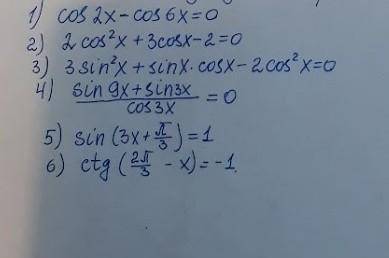 1) cos 2x - cos 6x = 0
2) 2 cos²x + 3cosx - 2 = 0
3) 3 sin²x + sinx · cosx - 2cos²x = 0
4) (sin 9x + sin 3x) / (cos 3x) = 0
5) sin (3x + π/3) = 1
6) ctg (2π/3 - x) = -1